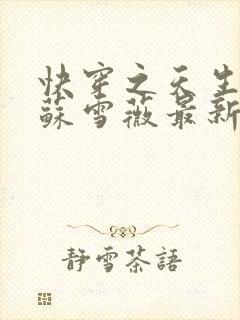 快穿之天生
蘇雪薇最新
靜雪茶語